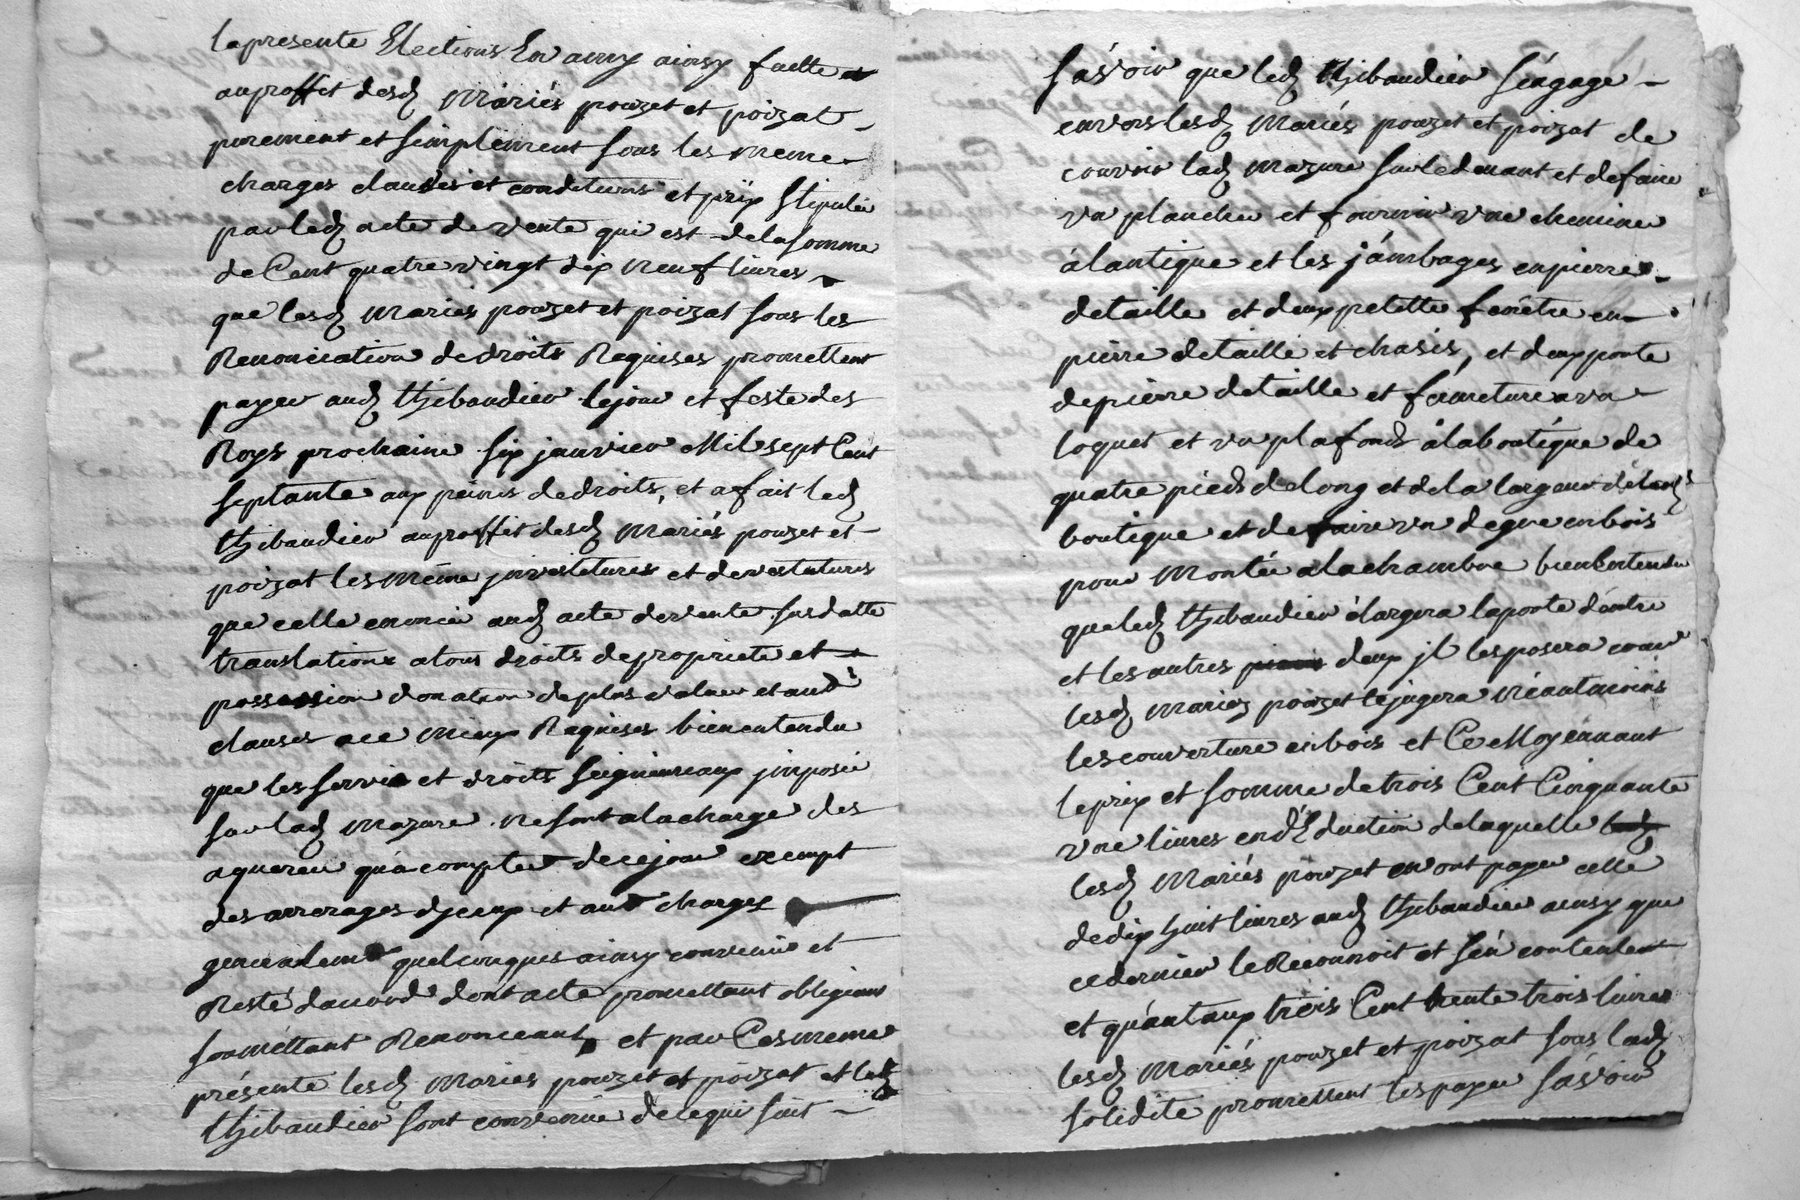 la presente Elections En amy ainsy faitte et
au proffit desd Mariés pouzet et poizat
purement et simplement sous les meme
charges clauses et conditions et prix stipulés
par led acte de vente qui est de la somme
de Cent quatre vingt dix neuf livres
que lesd Mariés pouzet et poizat sous les
Renonciation de droits Requises promettent
payer aud thibaudier le jour et feste des
Roys prochaine six janvier Mil sept Cent
septante aux peines de droits, et a fait led
thibaudier au proffit desd Mariés pouzet et
poizat les Même jnvestitures et devestitures
que celle enoncée aud acte de vente susdatte
translations a tous droits de proprieté et
possession donation de plus value et autr
clauses a ce Mieux Requises bien entendu
que les servis et droits seigneuriaux jmposée
sur lad Mazure ne sont a la charge des
aquereu qu'a compter de ce jour exempt
des arrerages d'jceux et autr charges
generalemt quelconques ainsy convenu et
Resté d'acord dont acte promettant obligeant
soumettant Renonceant, et par Ces meme
présente lesd Mariés pouzet et poizat et led
thibaudier sont convenue de ce qui suit
sávoir que led thibaudier s'éngage
envers lesd Mariés pouzet et poizat de
couvrir lad Mazure sur le devant et de faire
un plancher et fournir une cheminée
á l'antique et les jámbages en pierre
de taille et deux petitte fenétre en
pierre de taille et chasis, et deux porte
de pierre de taille et férmeture a un
loquet et un plafond á la boutique de
quatre pieds de long et de la largeur de lad
boutique et de faire un degré en bois
pour Montér a la chambre bien Entendu
que led thibaudier élargera la porte d'entre
et les autres deux jl les posera comm
lesd Mariés pouzet le jugera Néantmoins
les couverture en bois et Ce Moyénnant
le prix et somme de trois Cent Cinquante
une livres en déduction de laquelle
lesd Mariés pouzet en ont payer celle
de dix huit livres aud thibaudier ainsy que
ce dernier le Reconnoit et s'én contentent
et quánt aux trois Cent trente trois livres
lesd Mariés pouzet et poizat sous lad
solidite promettent les payer sávoir